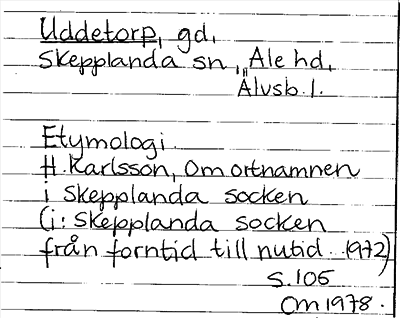 Uddetorp, gd,
Skepplanda sn, Ale hd,
Älvsb. l.
Etymologi
H. Karlsson, Om ortnamnen
i Skepplanda socken
(i: Skepplanda socken
från forntid till nutid. 1972)
s. 105
OM 1978.